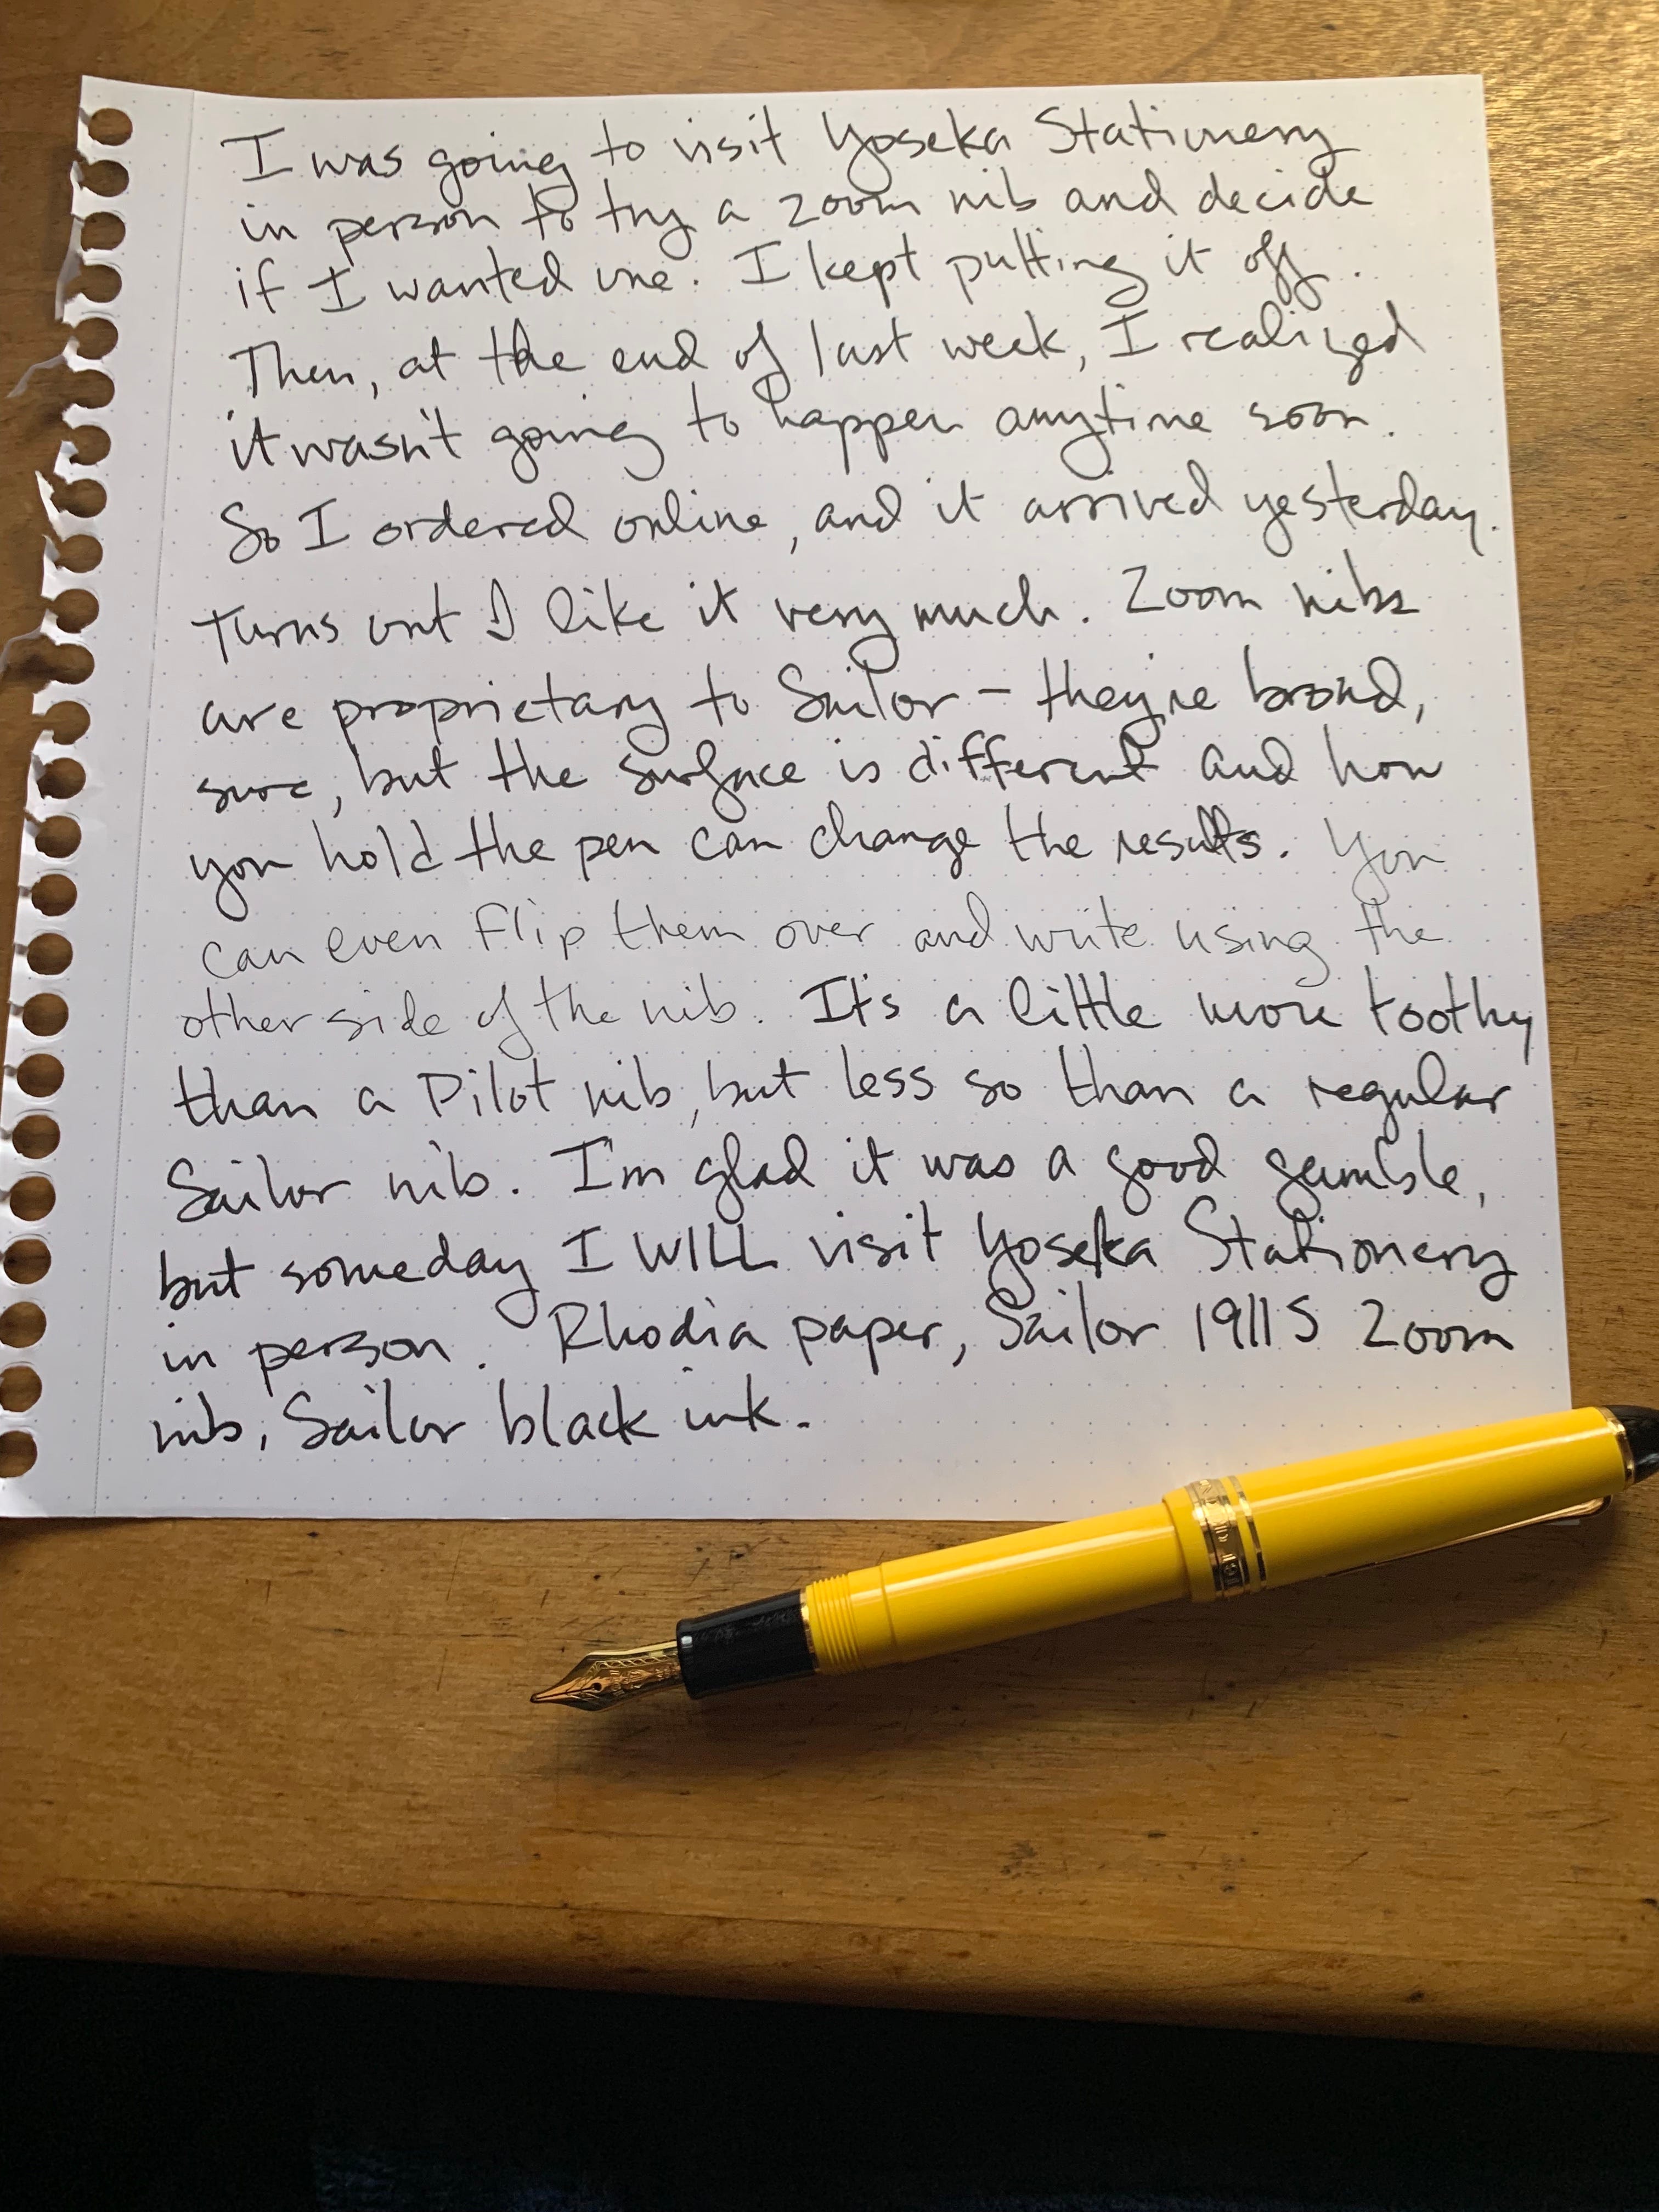 I was going to visit Yoseka Stationery
in person to try a zoom nib and decide
if I wanted one. I kept putting it off.
Then, at the end of last week, I realized
it wasn't going to happen anytime soon.
So I ordered online, and it arrived yesterday.
Turns out I like it very much. Zoom nibs
are proprietary to Sailor - they're broad,
sure, but the surface is different and how
you hold the pen can change the results. You
can even flip them over and write using the
other side of the nib. It's a little more toothy
than a Pilot nib, but less so than a regular
Sailor nib. I'm glad it was a good gamble,
but someday I WILL visit Yoseka Stationery
in person. Rhodia paper, Sailor 1911S Zoom
nib, Sailor black ink.